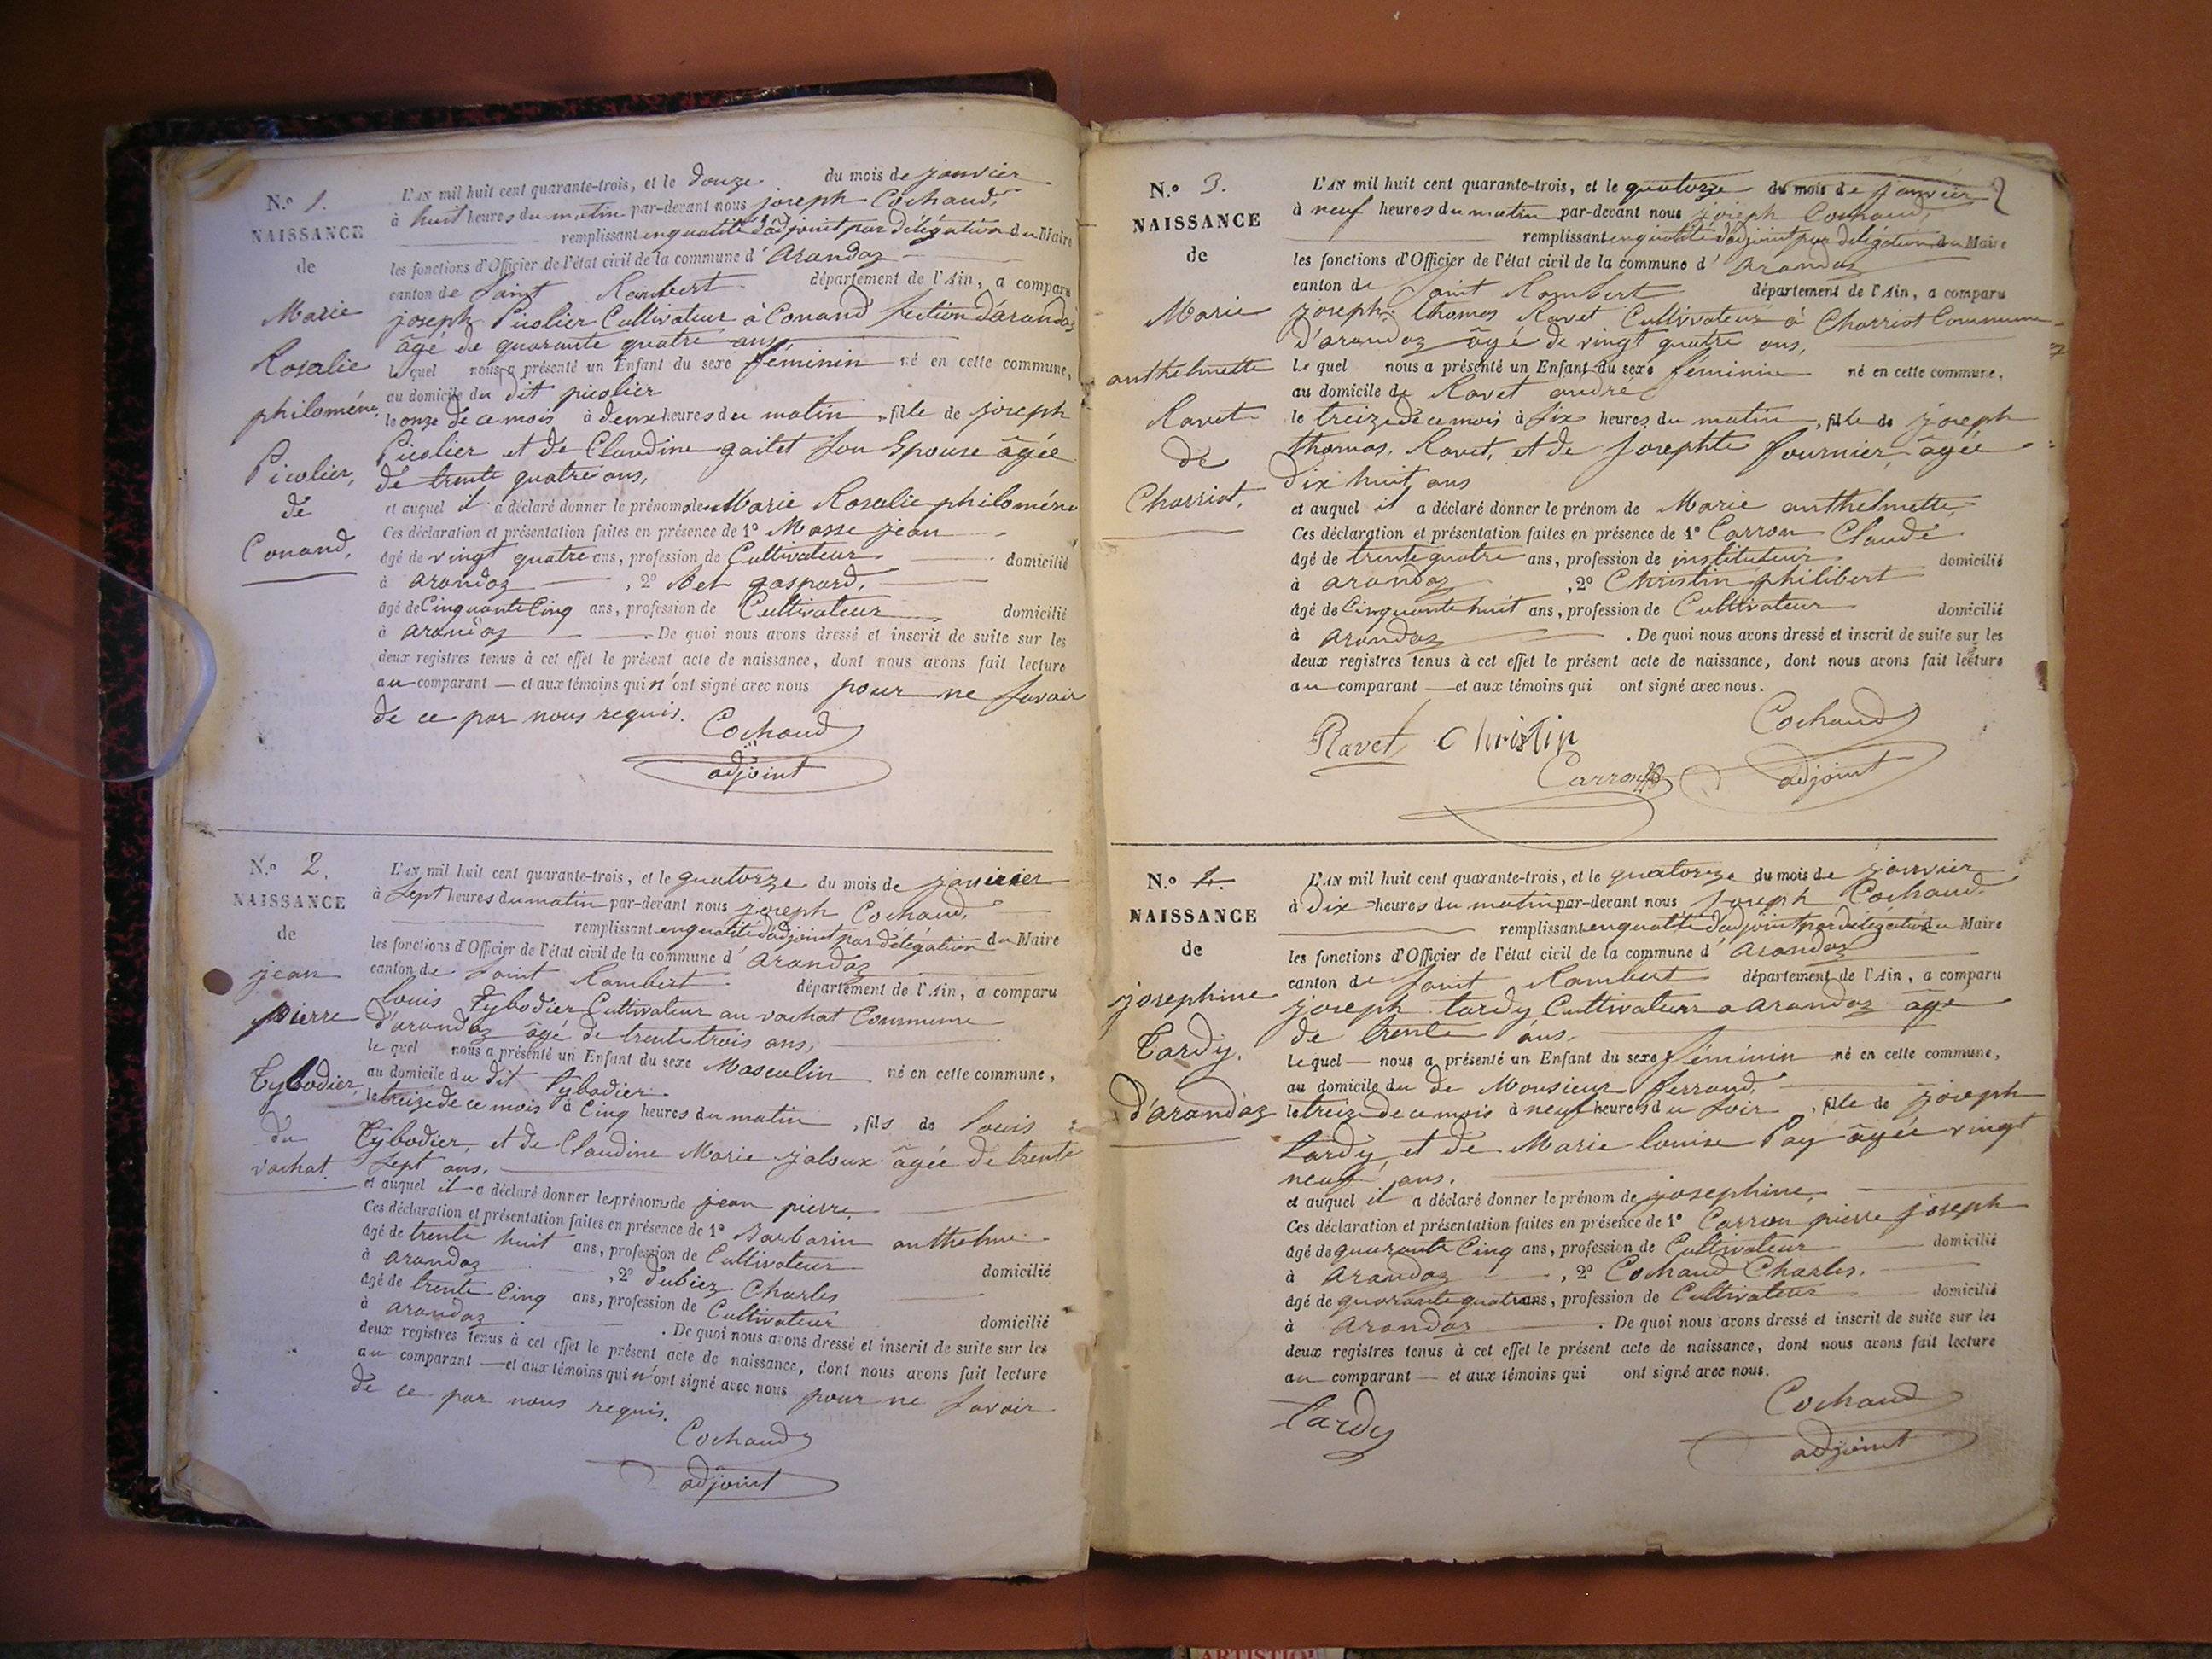 N.º 1.
NAISSANCE
de
Marie
Rosalie
philoméne
Picolier,
de
Conand,
L'AN mil huit cent quarante-trois, et le douze du mois de janvier
à huit heures du matin par-devant nous joseph Cochaud,
remplissant en qualité d'adjoint par délégation du Maire
les fonctions d'Officier de l'état civil de la commune d' Arandaz
canton de Saint Rambert département de l'Ain, a comparu
joseph Picolier Cultivateur à Conand Section d'arandaz
âgé de quarante quatre ans,
le quel nous a présenté un Enfant du sexe féminin né en cette commune,
au domicile du dit picolier
le onze de ce mois à deux heures du matin, fille de joseph
Picolier et de Claudine gaitet son Epouse âgée
de trente quatre ans,
et auquel il a déclaré donner le prénoms de Marie Rosalie philoméne
Ces déclaration et présentation faites en présence de 1º Masse jean
âgé de vingt quatre ans, profession de Cultivateur domicilié
à arandaz, 2º Bet gaspard,
âgé de Cinquante Cinq ans, profession de Cultivateur domicilié
à arandaz. De quoi nous avons dressé et inscrit de suite sur les
deux registres tenus à cet effet le présent acte de naissance, dont nous avons fait lecture
au comparant — et aux témoins qui n'ont signé avec nous pour ne savoir
de ce par nous requis.
Cochaud
adjoint
N.º 2.
NAISSANCE
de
jean
pierre
Tybodier,
du
vachat.
L'AN mil huit cent quarante-trois, et le quatorze du mois de janvier
à Sept heures du matin par-devant nous joseph Cochaud,
remplissant en qualité d'adjoint par délégation du Maire
les fonctions d'Officier de l'état civil de la commune d' arandaz
canton de Saint Rambert département de l'Ain, a comparu
louis Tybodier Cultivateur au vachat Commune
d'arandaz âgé de trente trois ans,
le quel nous a présenté un Enfant du sexe Masculin né en cette commune,
au domicile du dit Tybodier
le treize de ce mois à Cinq heures du matin, fils de louis
Tybodier, et de Claudine Marie jaloux âgée de trente
Sept ans.
et auquel il a déclaré donner les prénoms de jean pierre,
Ces déclaration et présentation faites en présence de 1º Barbarin anthelme
âgé de trente huit ans, profession de Cultivateur domicilié
à arandaz, 2º dubiez Charles
âgé de trente Cinq ans, profession de Cultivateur domicilié
à arandaz. De quoi nous avons dressé et inscrit de suite sur les
deux registres tenus à cet effet le présent acte de naissance, dont nous avons fait lecture
au comparant — et aux témoins qui n'ont signé avec nous pour ne savoir
de ce par nous requis.
Cochaud
adjoint
2
N.º 3.
NAISSANCE
de
Marie
anthelmette
Ravet
de
Charriot.
L'AN mil huit cent quarante-trois, et le quatorze du mois de janvier
à neuf heures du matin par-devant nous joseph Cochaud,
remplissant en qualité d'adjoint par délégation du Maire
les fonctions d'Officier de l'état civil de la commune d' Arandaz
canton de Saint Rambert département de l'Ain, a comparu
joseph thomas Ravet Cultivateur à Charriot Commune
d'arandaz âgé de vingt quatre ans,
Le quel nous a présenté un Enfant du sexe féminin né en cette commune,
au domicile de Ravet andré
le treize de ce mois à six heures du matin, fille de joseph
thomas, Ravet, et de Josephte fournier, âgée
dix huit ans
et auquel il a déclaré donner le prénom de Marie anthelmette,
Ces déclaration et présentation faites en présence de 1º Carron Claude
âgé de trente quatre ans, profession de instituteur domicilié
à arandaz, 2º Christin philibert
âgé de Cinquante huit ans, profession de Cultivateur domicilié
à arandaz. De quoi nous avons dressé et inscrit de suite sur les
deux registres tenus à cet effet le présent acte de naissance, dont nous avons fait lecture
au comparant — et aux témoins qui ont signé avec nous.
Ravet Christin Cochaud
Carron adjoint
N.º 4.
NAISSANCE
de
josephine
Tardy.
d'arandaz
L'AN mil huit cent quarante-trois, et le quatorze du mois de janvier
à dix heures du matin par-devant nous Joseph Cochaud
remplissant en qualité d'adjoint par délégation du Maire
les fonctions d'Officier de l'état civil de la commune d' arandaz
canton de Saint Rambert département de l'Ain, a comparu
joseph tardy Cultivateur a arandaz âgé
de trente ans.
Le quel — nous a présenté un Enfant du sexe féminin né en cette commune,
au domicile du de Monsieur ferrand,
le treize de ce mois à neuf heures du soir, fille de joseph
tardy, et de Marie louise Pay âgée vingt
neuf ans.
et auquel il a déclaré donner le prénom de josephine,
Ces déclaration et présentation faites en présence de 1º Carron pierre joseph
âgé de quarante Cinq ans, profession de Cultivateur domicilié
à arandaz, 2º Cochaud Charles.
âgé de quarante quatre ans, profession de Cultivateur domicilié
à arandaz. De quoi nous avons dressé et inscrit de suite sur les
deux registres tenus à cet effet le présent acte de naissance, dont nous avons fait lecture
au comparant — et aux témoins qui ont signé avec nous.
Tardy Cochaud
adjoint